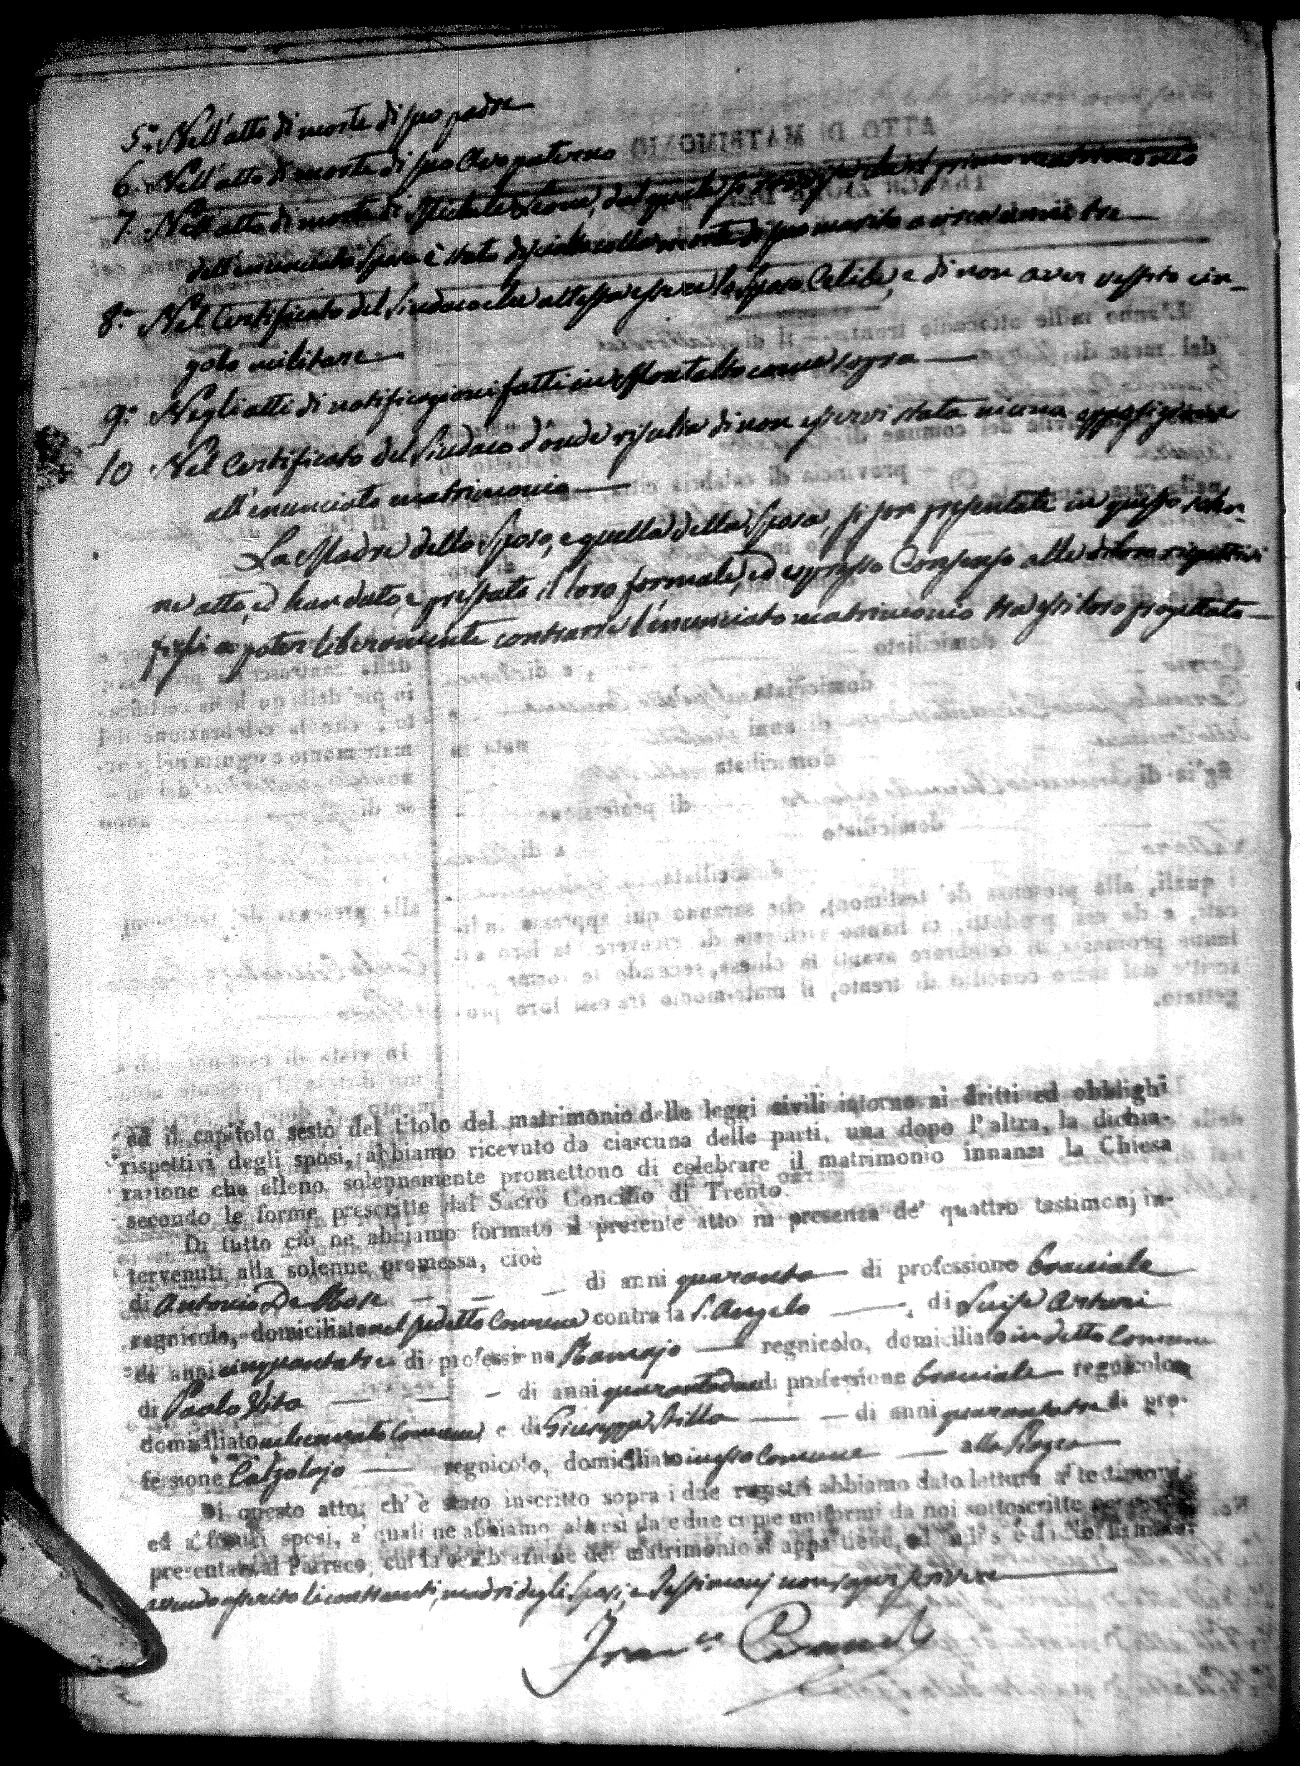 5.° Nell'atto di morte di suo padre
6. Nell'atto di morte di suo Avo paterno
7. Nell'atto di morte di dal quale primo matrimonio
dell'enunciata Sposa è stato disciolto colla morte di suo marito
8.° Nel Certificato del Sindaco che attesta essere lo Sposo Celibe, e di non aver vestito cin-
golo militare
9.° Negli atti di notificazioni fatti in Montalto come sopra
10 Nel Certificato del Sindaco donde risulta di non esservi stata niuna opposizione
all'enunciato matrimonio
La Madre dello Sposo, e quella della Sposa, si son presentate in questo
ne atto, ed han dato, e prestato il loro formale, ed espresso Consenso alli di loro rispettivi
figli a poter liberamente contrarre l'enunciato matrimonio tra essi loro progettato
ed il capitolo sesto del titolo del matrimonio delle leggi civili intorno ai dritti ed obblighi
rispettivi degli sposi, abbiamo ricevuto da ciascuna delle parti, una dopo l'altra, la dichia-
razione che elleno solennemente promettono di celebrare il matrimonio innanzi la Chiesa
secondo le forme prescritte dal Sacro Concilio di Trento.
Di tutto ciò ne abbiamo formato il presente atto in presenza de' quattro testimonj in-
tervenuti alla solenne promessa, cioè
di Antonio De Rose di anni quaranta di professione bracciale
regnicolo, domiciliato nel predetto Comune contra la S. Angelo , di Luigi Arturi
di anni cinquantatre di professione Ramajo regnicolo, domiciliato in detto Comune
di Paolo Vito di anni quarantadue di professione bracciale regnicolo
domiciliato nell'enunciato Comune, e di Giuseppe Aillo di anni quarantatre di pro-
fessione Calzolajo regnicolo, domiciliato in esso Comune alla Piazza
Di questo atto, ch' è stato inscritto sopra i due registri abbiamo dato lettura a' testimonj
ed a' futuri sposi, a' quali ne abbiamo altresì date due copie uniformi da noi sottoscritte per essere
presentate al Parroco, cui la celebrazione del matrimonio si appartiene, ed indi s' è da Noi firmato
avendo asserito li contraenti, madri degli Sposi, e Testimonj non saper scrivere
Fran.co